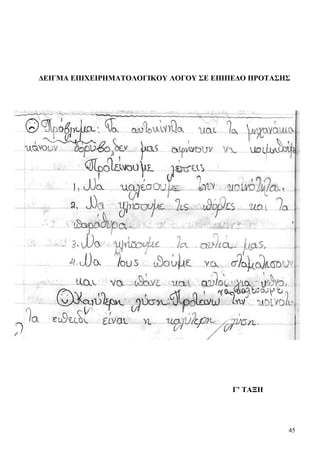 ΔΕΙΓΜΑ ΕΠΙΧΕΙΡΗΜΑΤΟΛΟΓΙΚΟΥ ΛΟΓΟΥ ΣΕ ΕΠΙΠΕΔΟ ΠΡΟΤΑΣΗΣ
Πρόβλημα: Τα αυτοκίνητα και τα μηχανάκια
κάνουν θόρυβο δεν μας αφήνουν να κοιμηθούμε
Προτείνουμε λύσεις
1. Να καλέσουμε την κοινότητα.
2. Να κλείσουμε τις πόρτες και τα
παράθυρα.
3. Να κλείσουμε τα αυτιά μας.
4. Να τους πούμε να σταματήσουν
και να πάνε και αυτοί για ύπνο.
Καλύτερη λύση: Προτείνω να καλέσουμε την κοινότη
τα επειδή είναι η καλύτερη λύση.
Γ' ΤΑΞΗ
45